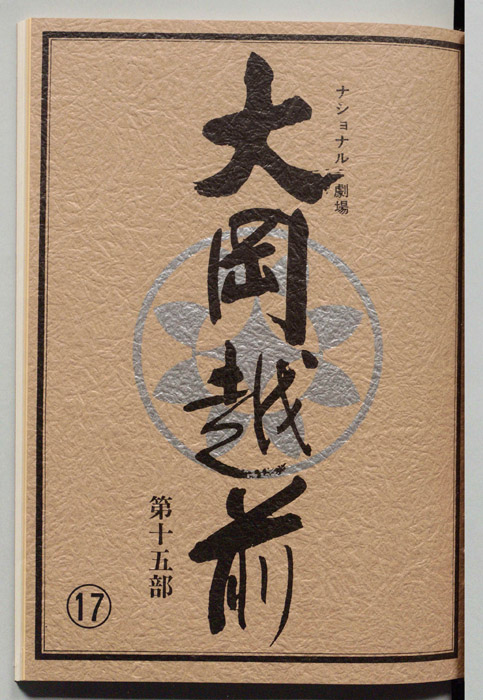 ナショナル劇場
大岡越前
第十五部
17